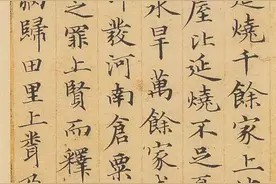 延燒千餘家上
屋比延燒不足
水旱萬餘家
發河南倉粟
之罪上賢而釋
歸田里上